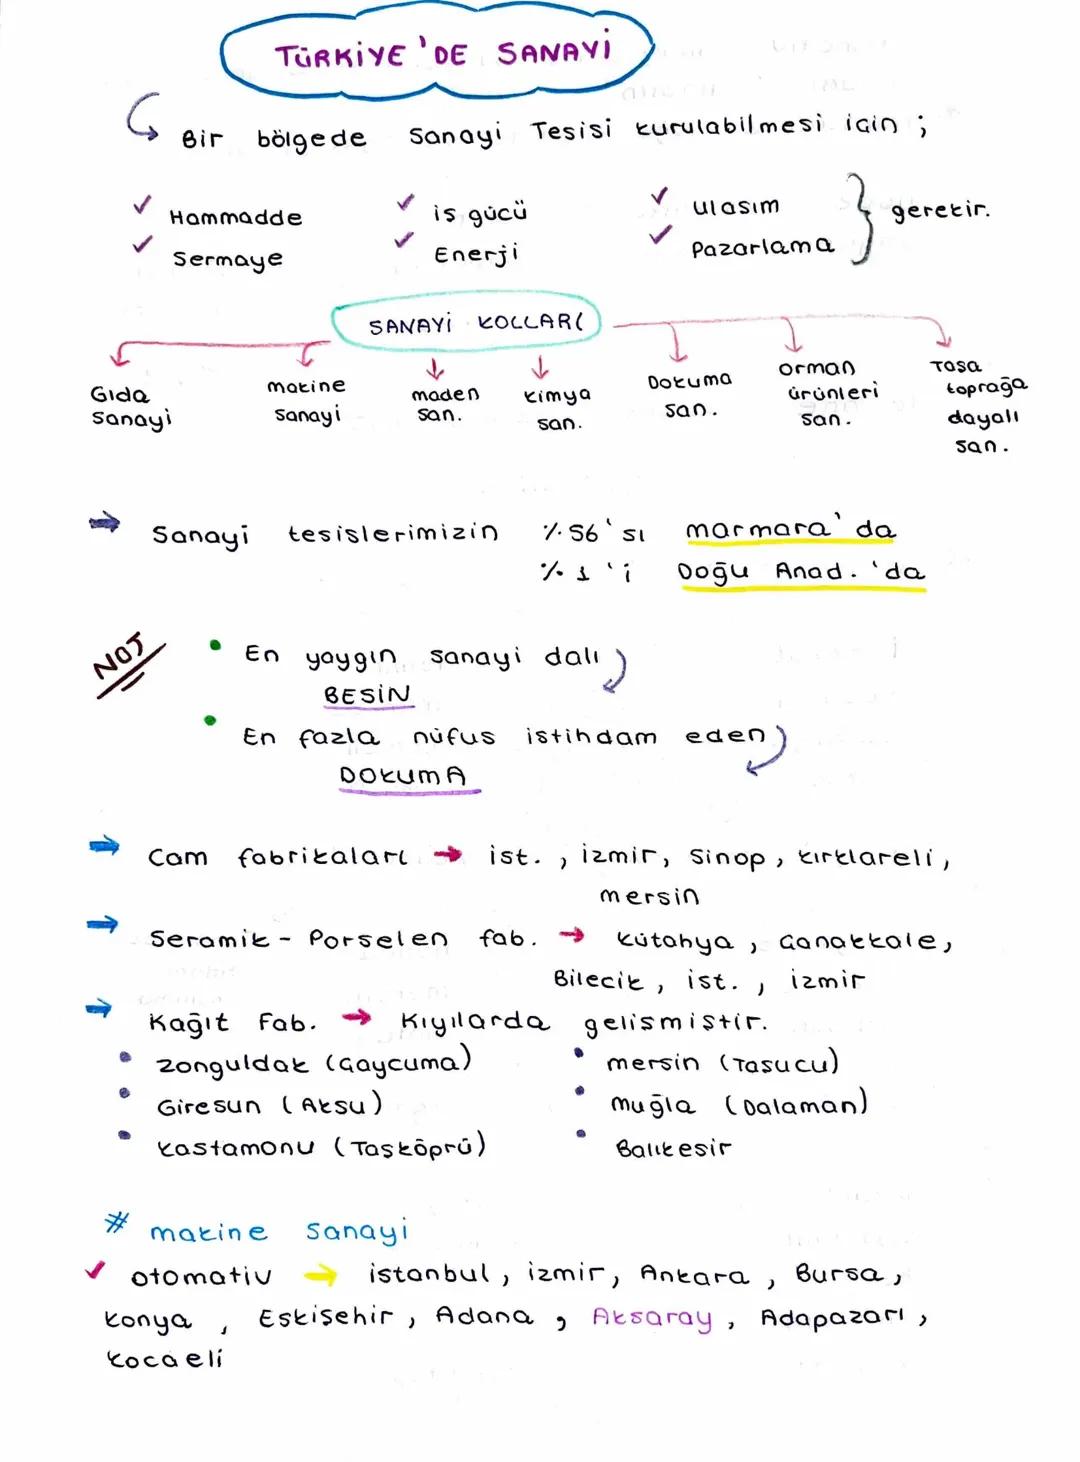 TÜRKİYE'DE SANAYİ
Bir bölgede Sanayi Tesisi kurulabilmesi için ;
Hammadde iş gücü ulaşım gerekir.
Sermaye Enerji Pazarlama
SANAYİ KOLLARI
Gıda Sanayi
makine Sanayi
maden san.
kimya san.
Dokuma san.
orman ürünleri san.
Taşa toprağa dayalı san.
Sanayi tesislerimizin %56'sı marmara'da
%1'i Doğu Anad.'da
NOT
• En yaygın sanayi dalı
BESİN
• En fazla nüfus istihdam eden
DOKUMA
Cam fabrikaları → ist. , izmir, Sinop, kırklareli,
mersin
Seramik - Porselen fab. → Kütahya, Çanakkale,
Bilecik, ist. , izmir
Kağıt Fab. → Kıyılarda gelişmiştir.
• Zonguldak (Çaycuma) • mersin (Taşucu)
• Giresun (Aksu) • muğla (Dalaman)
• kastamonu (Taşköprü) • Balıkesir
# makine Sanayi
✓ otomativ → istanbul, izmir, Ankara, Bursa,
konya, Eskişehir, Adana, Aksaray, Adapazarı,
kocaeli